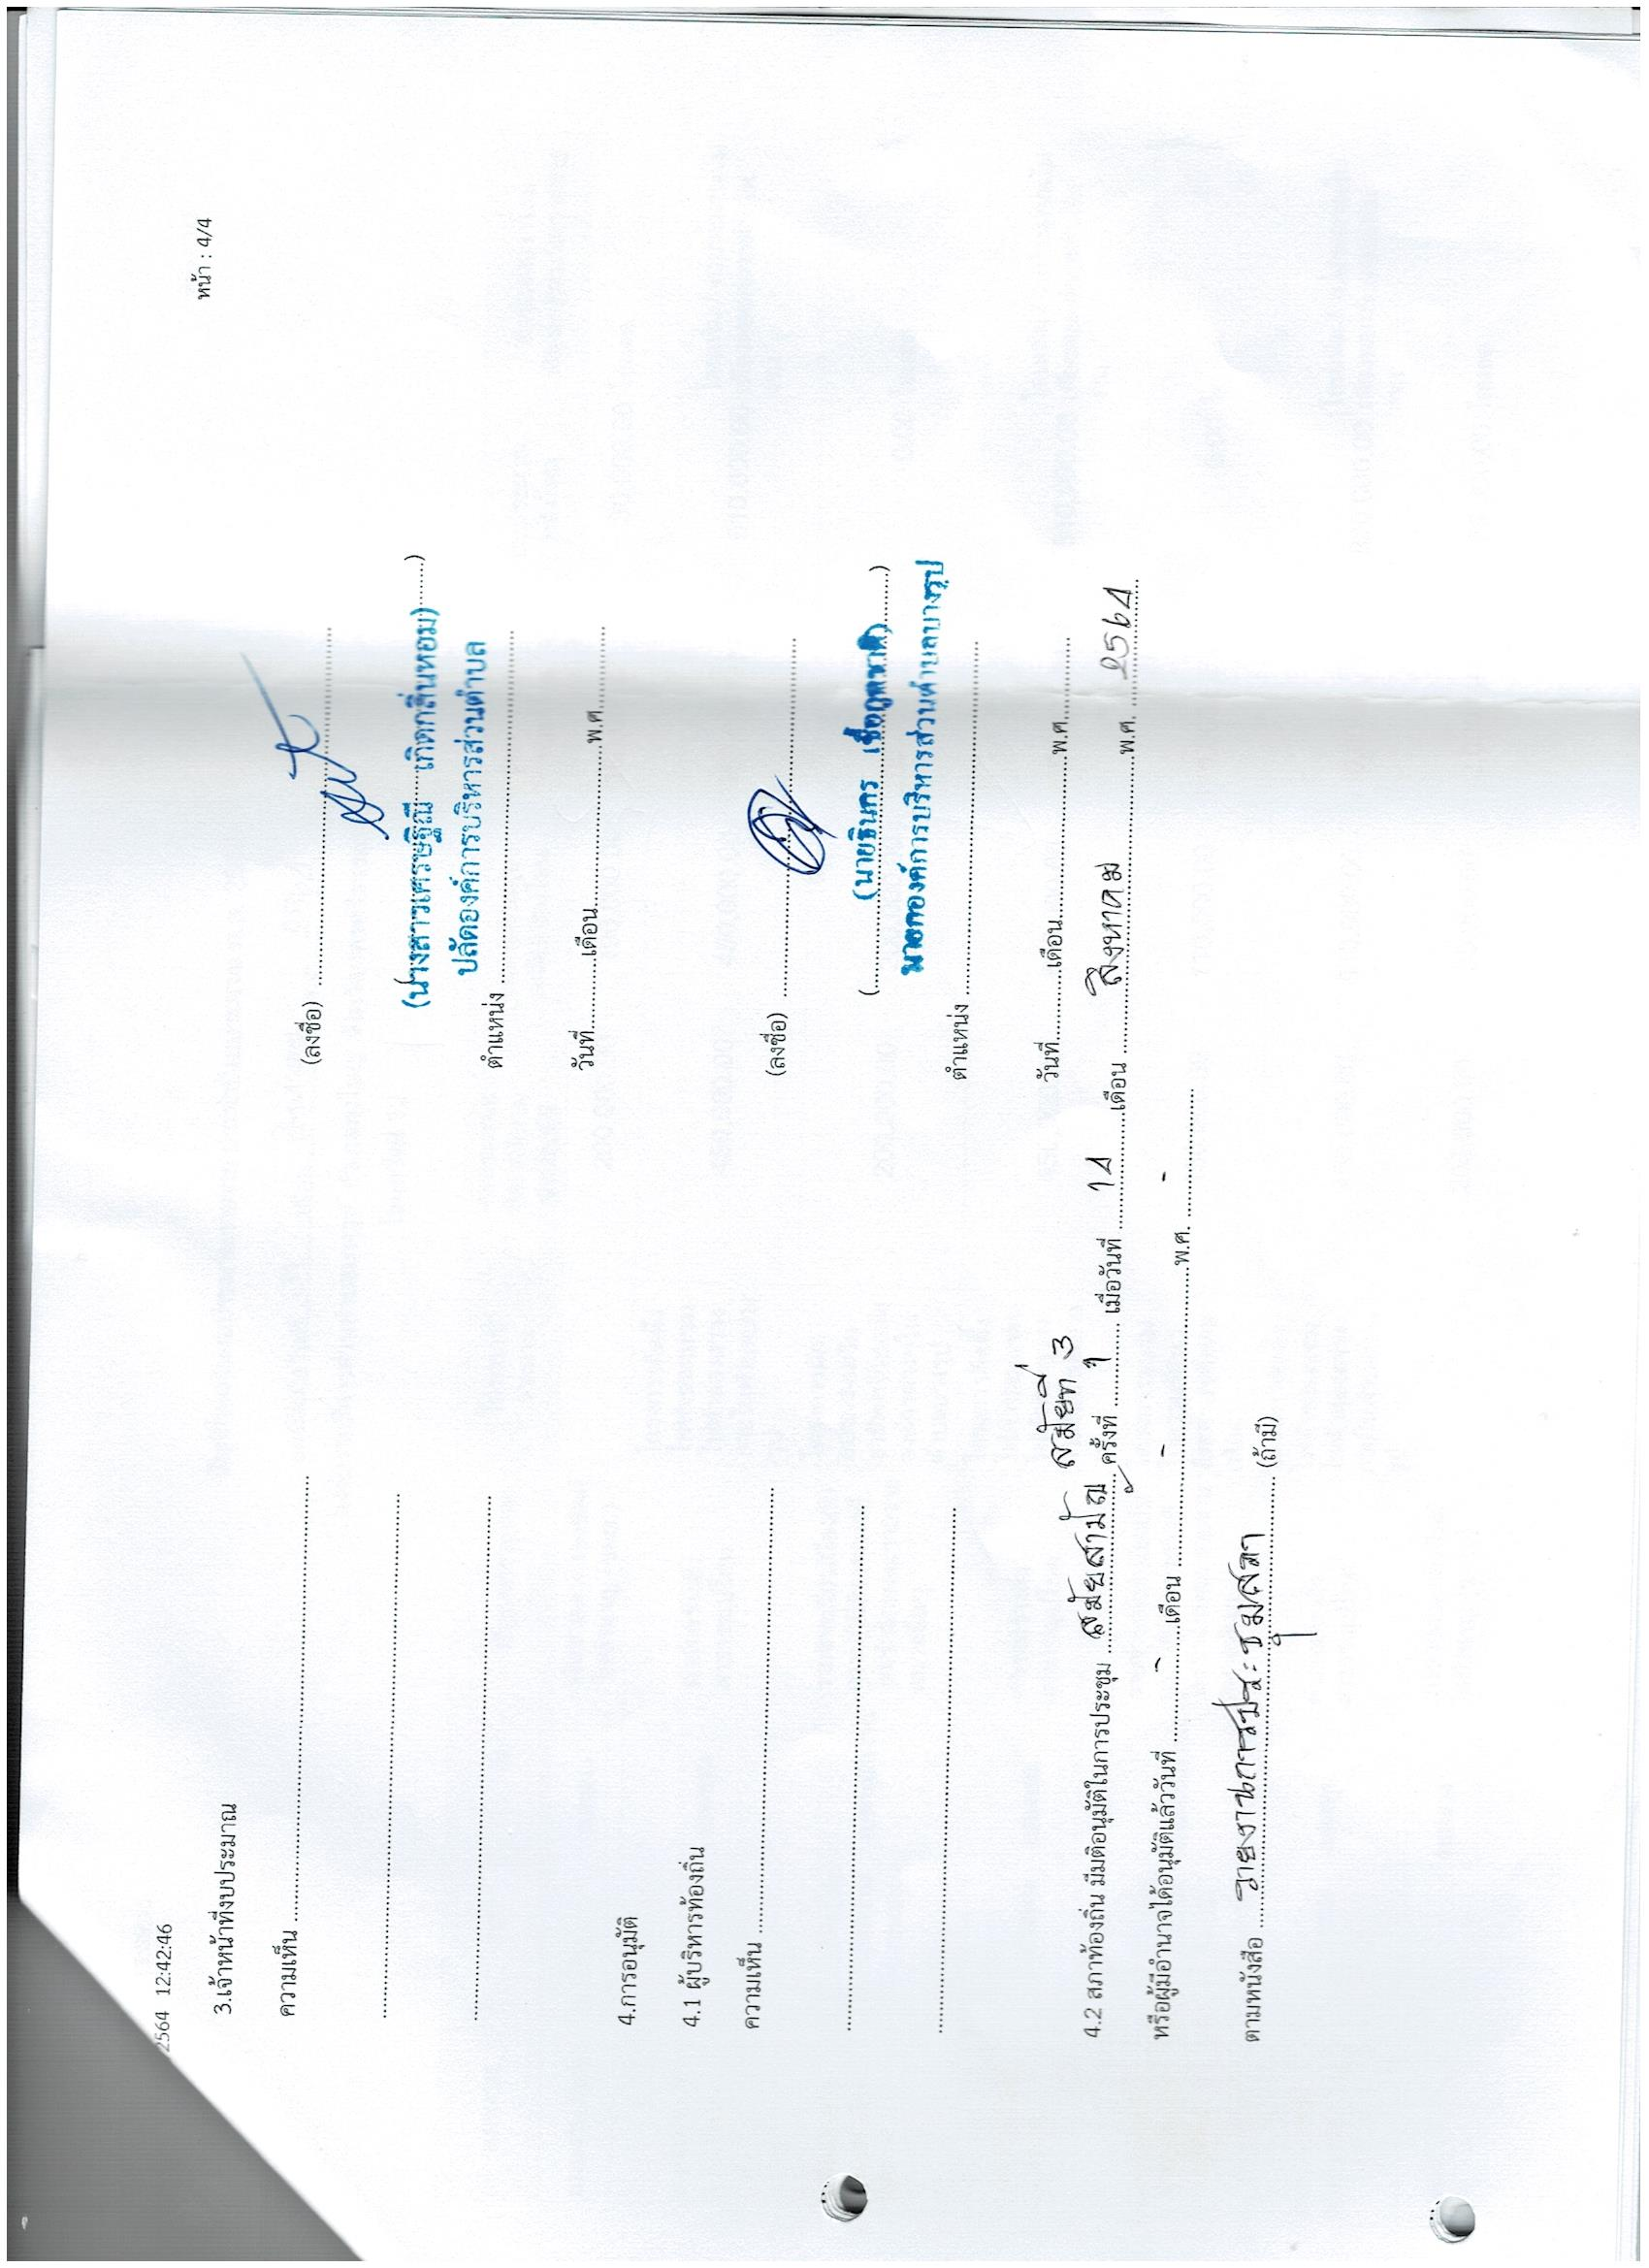 2564 12:42:46
หน้า : 4/4
3.เจ้าหน้าที่งบประมาณ
ความเห็น ....................
(ลงชื่อ) ....................
(นางสาวเศรษฐินี เกิดกลิ่นหอม)
ปลัดองค์การบริหารส่วนตำบล
ตำแหน่ง ....................
วันที่............เดือน....................พ.ศ.............
4.การอนุมัติ
4.1 ผู้บริหารท้องถิ่น
ความเห็น ....................
(ลงชื่อ) ....................
(นายธินกร
นายกองค์การบริหารส่วนตำบล
ตำแหน่ง ....................
วันที่............เดือน....................พ.ศ.............
4.2 สภาท้องถิ่น มีมติอนุมัติในการประชุม สมัยสามัญ สมัยที่ 3 ครั้งที่ 1 เมื่อวันที่ 14 เดือน สิงหาคม พ.ศ. 2564
หรือผู้มีอำนาจได้อนุมัติแล้ววันที่ - เดือน - พ.ศ. -
ตามหนังสือ รายงานการประชุมสภา (ถ้ามี)